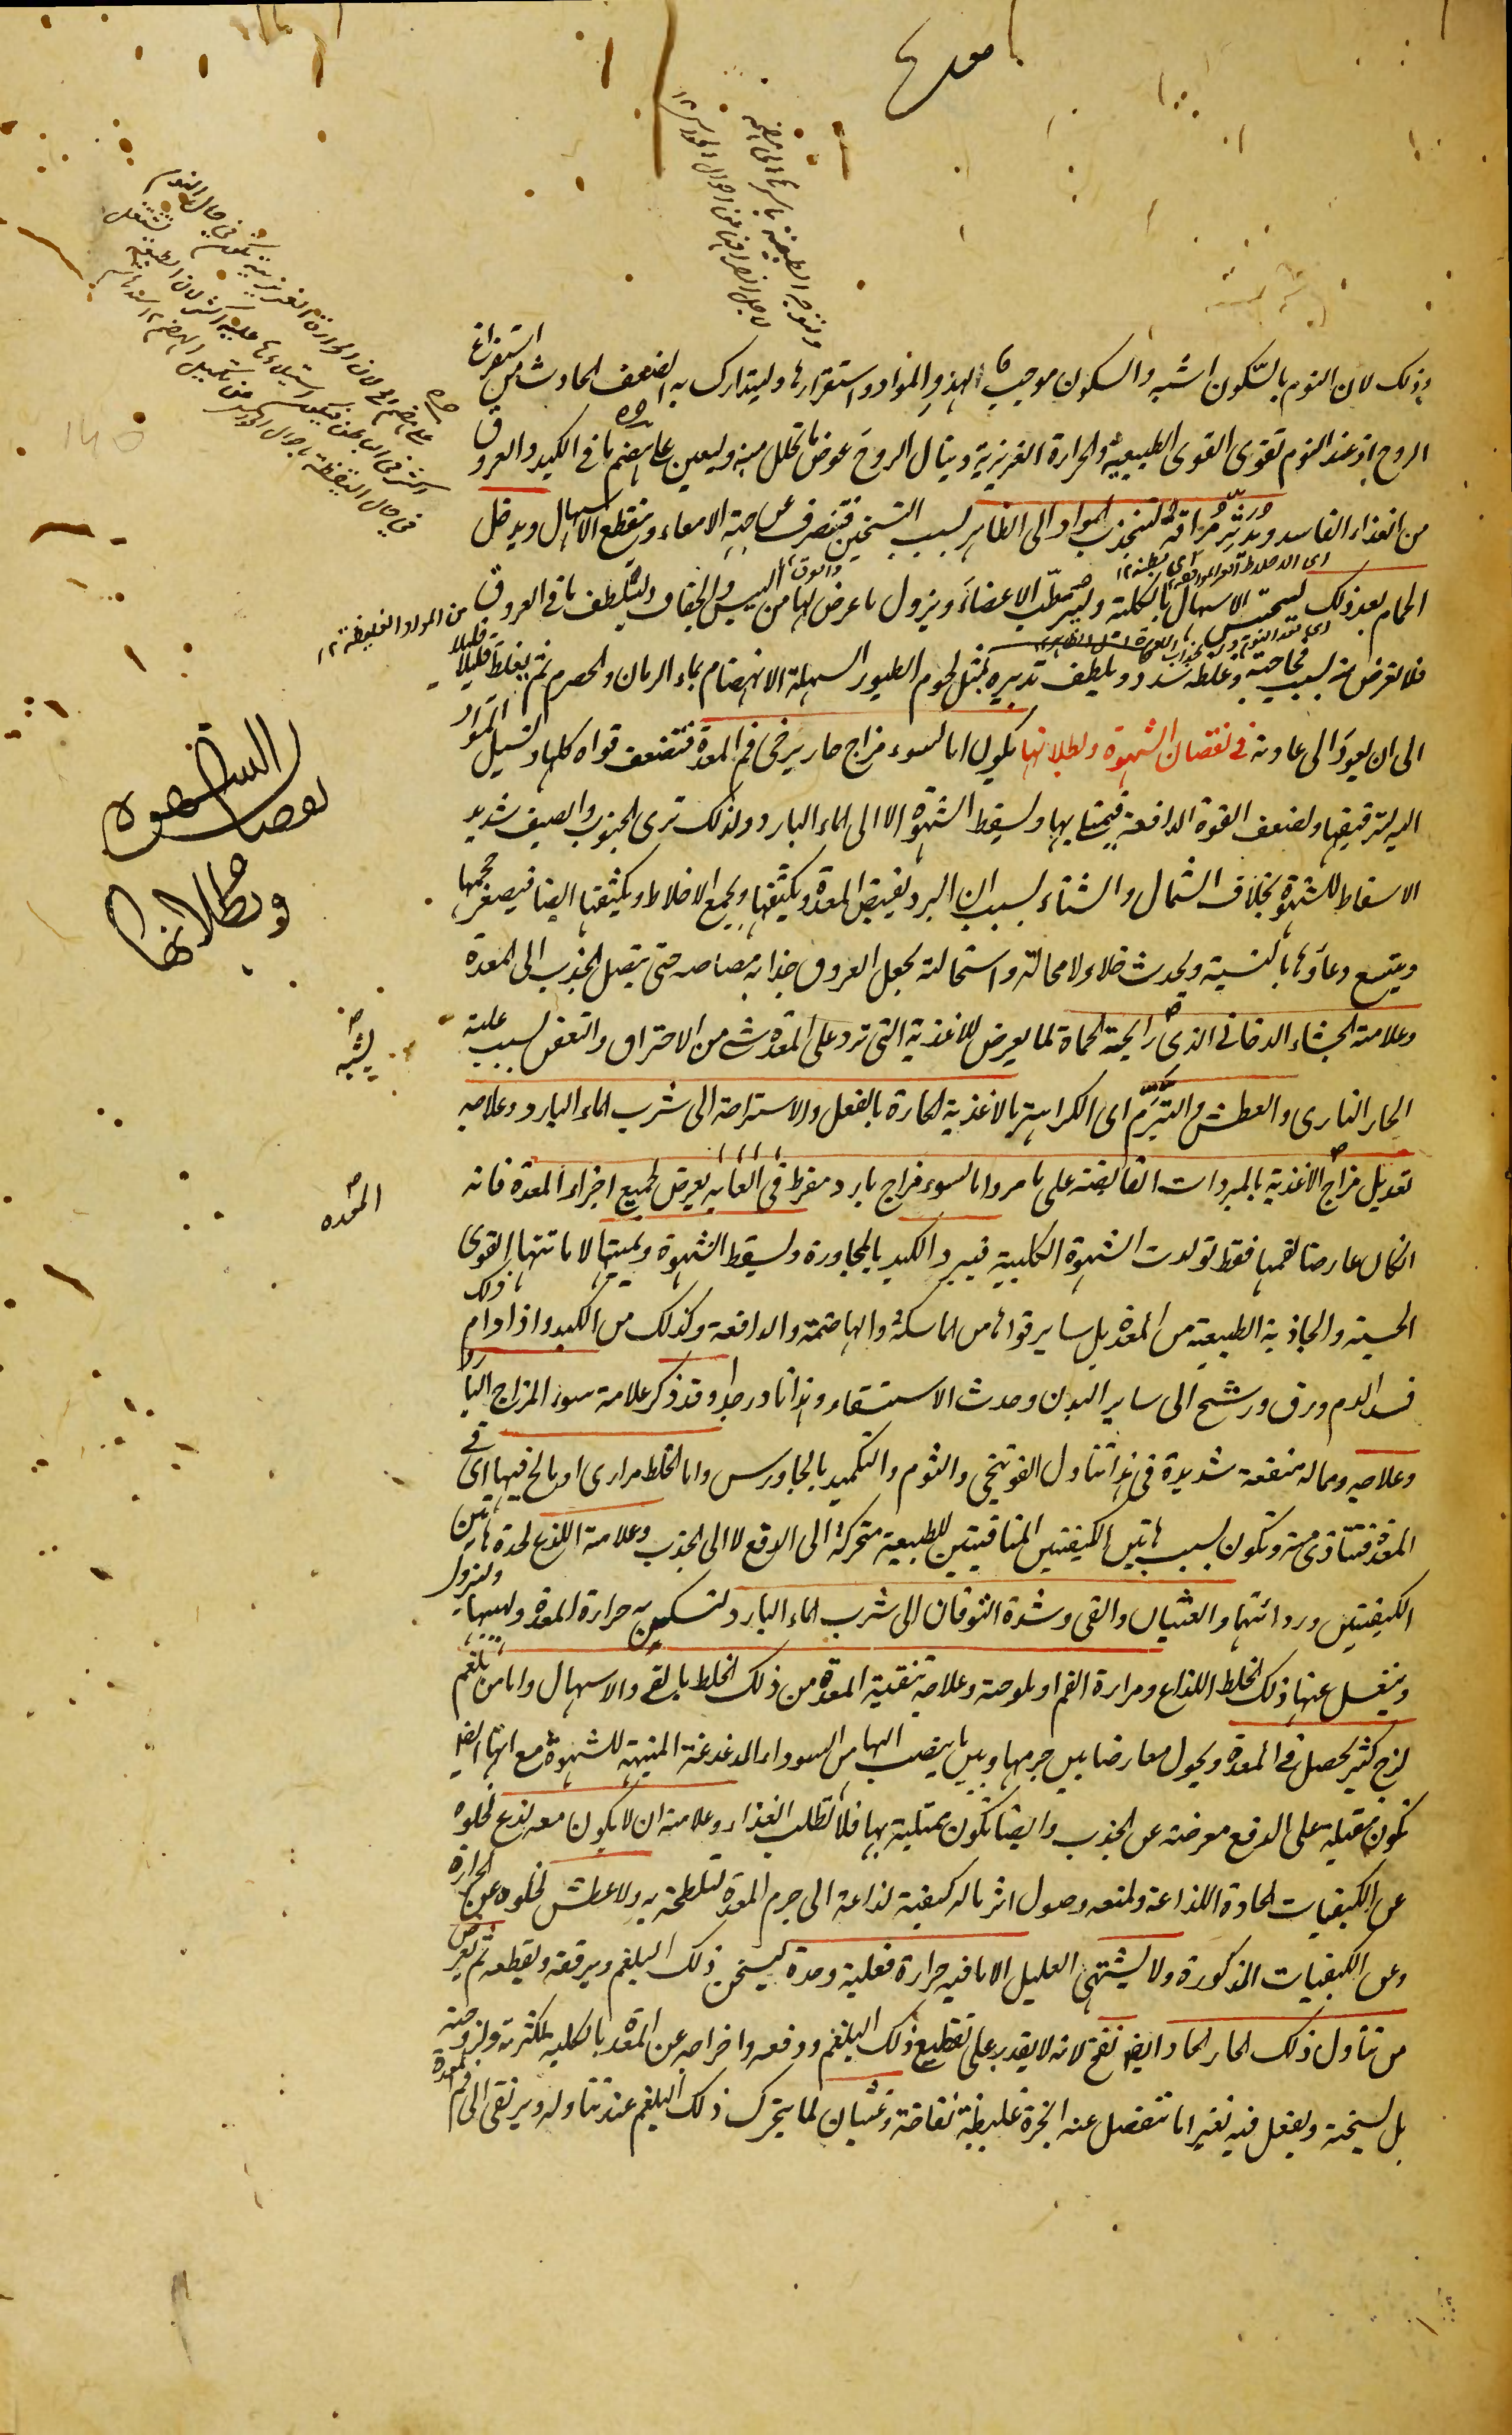 معده
وذلك لان النوم بالسكون اشبه والسكون موجب لهذو المواد واستقرارها وليتدارك به الضعف الحادث من استفراغ
الروح اذ عند النوم تقوى القوى الطبيعية والحرارة الغريزية وينال الروح عوض ما تحلل منه وليعين على هضم ما في الكبد والعروق
من الغذاء الفاسد وتدثر مراقه لتنجذب المواد الى الظاهر بسبب التسخين فتنصرف عن جهة الامعاء وينقطع الاسهال ويدخل
الحمام بعد ذلك ليحتبس الاسهال بالكلية وليرطب الاعضاء ويزول ما عرض لها من اليبس والجفاف وليتلطف ما في العروق
فلا تعرض منه بسبب فجاجته وغلظه سدد ويلطف تدبيره بمثل لحوم الطيور السهلة الانهضام بماء الرمان والحصرم ثم يغلظ قليلا قليلا
الى ان يعود الى عادته في نقصان الشهوة وبطلانها يكون اما لسوء مزاج حار يرخى فم المعدة فتضعف قواه كلها وتسيل المواد
اليه لترقيقها ولضعف القوة الدافعة فيمتلى بها ويسقط الشهوة الا الى الماء البارد ولذلك ترى الجنوب والصيف شديد
الاسقاط للشهوة بخلاف الشمال والشتاء بسبب ان البرد يقبض المعدة ويكثفها ويجمع الاخلاط ويكثفها ايضا فيصغر حجمها
ويتسع وعاؤها بالنسبة ويحدث خلاء لا محالة واستحالته يجعل العروق جذابه مصاصه حتى يتصل الجذب الى المعدة
وعلامته الجشاء الدخانى الذى رايحة الحماة لما يعرض للاغذية التى ترد على المعدة شىء من الاحتراق والتعفن بسبب غلبة
الحار النارى والعطش والتبرم اى الكراهية بالاغذية الحارة بالفعل والاستراحة الى شرب الماء البارد وعلاجه
تعديل مزاج الاغذية بالمبردات القابضة على ما مر واما لسوء مزاج بارد مفرط في الغايه يعرض لجميع اجزاء المعدة فانه
ان كان عارضا لفمها فقط تولدت الشهوة الكلبية فيبرد الكبد بالمجاورة ويسقط الشهوة ويميتها لاماتتها القوى
الحسية والجاذبة الطبيعية من المعدة بل ساير قواها من الماسكة والهاضمة والدافعة وكذلك من الكبد واذا دام ذلك
فسد الدم ورق ورشح الى ساير البدن وحدث الاستسقاء وهذا نادر جدا وقد ذكر علامة سوء المزاج البارد
وعلاجه ومما له منفعة شديدة فى هذا تناول الفوتنجى والثوم والتكميد بالجاورس واما لخلط مرارى او مالح فيها اى في
المعدة فتتاذى منه وتكون بسبب هاتين الكيفيتين المنافيتين للطبيعة متحركة الى الدفع لا الى الجذب وعلامته اللذع لحدة هاتين
الكيفيتين ورداءتهما والغثيان والقى وشدة التوقان الى شرب الماء البارد لتسكين به حرارة المعدة ولهيبها وليزول
وينغسل عنها ذلك الخلط اللذاع ومرارة الفم او ملوحته وعلاجه تنقية المعدة من ذلك الخلط بالقى والاسهال واما من بلغم
لزج كثير يحصل في المعدة ويحول معارضا بين جرمها وبين ما ينصب اليها من السوداء المدغدغة المنبهة للشهوة مع انها ايضا
تكون مقبلة على الدفع معرضة عن الجذب وايضا تكون ممتلية بها فلا تطلب الغذاء وعلامته ان لا يكون معه لذع لخلوه
عن الكيفيات الحادة اللذاعة ولمنعه وصول اثر ماله كيفية لذاعة الى جرم المعدة لتلطخه به ولا عطش لخلوه عن الحرارة
وعن الكيفيات المذكورة ولا يشتهى العليل الا ما فيه حرارة فعلية وحدة ليسخن ذلك البلغم ويرققه ويقطعه ثم يعرض
من تناول ذلك الحار الحاد ايضا نفخ لانه لا يقدر على تقطيع ذلك البلغم ودفعه واخراجه عن المعدة بالكلية لكثرته ولزوجته
بل يسخنه ويفعل فيه تغيرا ما تنفصل عنه ابخرة غليظة نفاخة وغثيان لما يتحرك ذلك البلغم عند تناوله ويرتقى الى فم المعدة
نقصان الشهوة
وبطلانها
يشبه
المعده
من المواد الغليظة ١٢